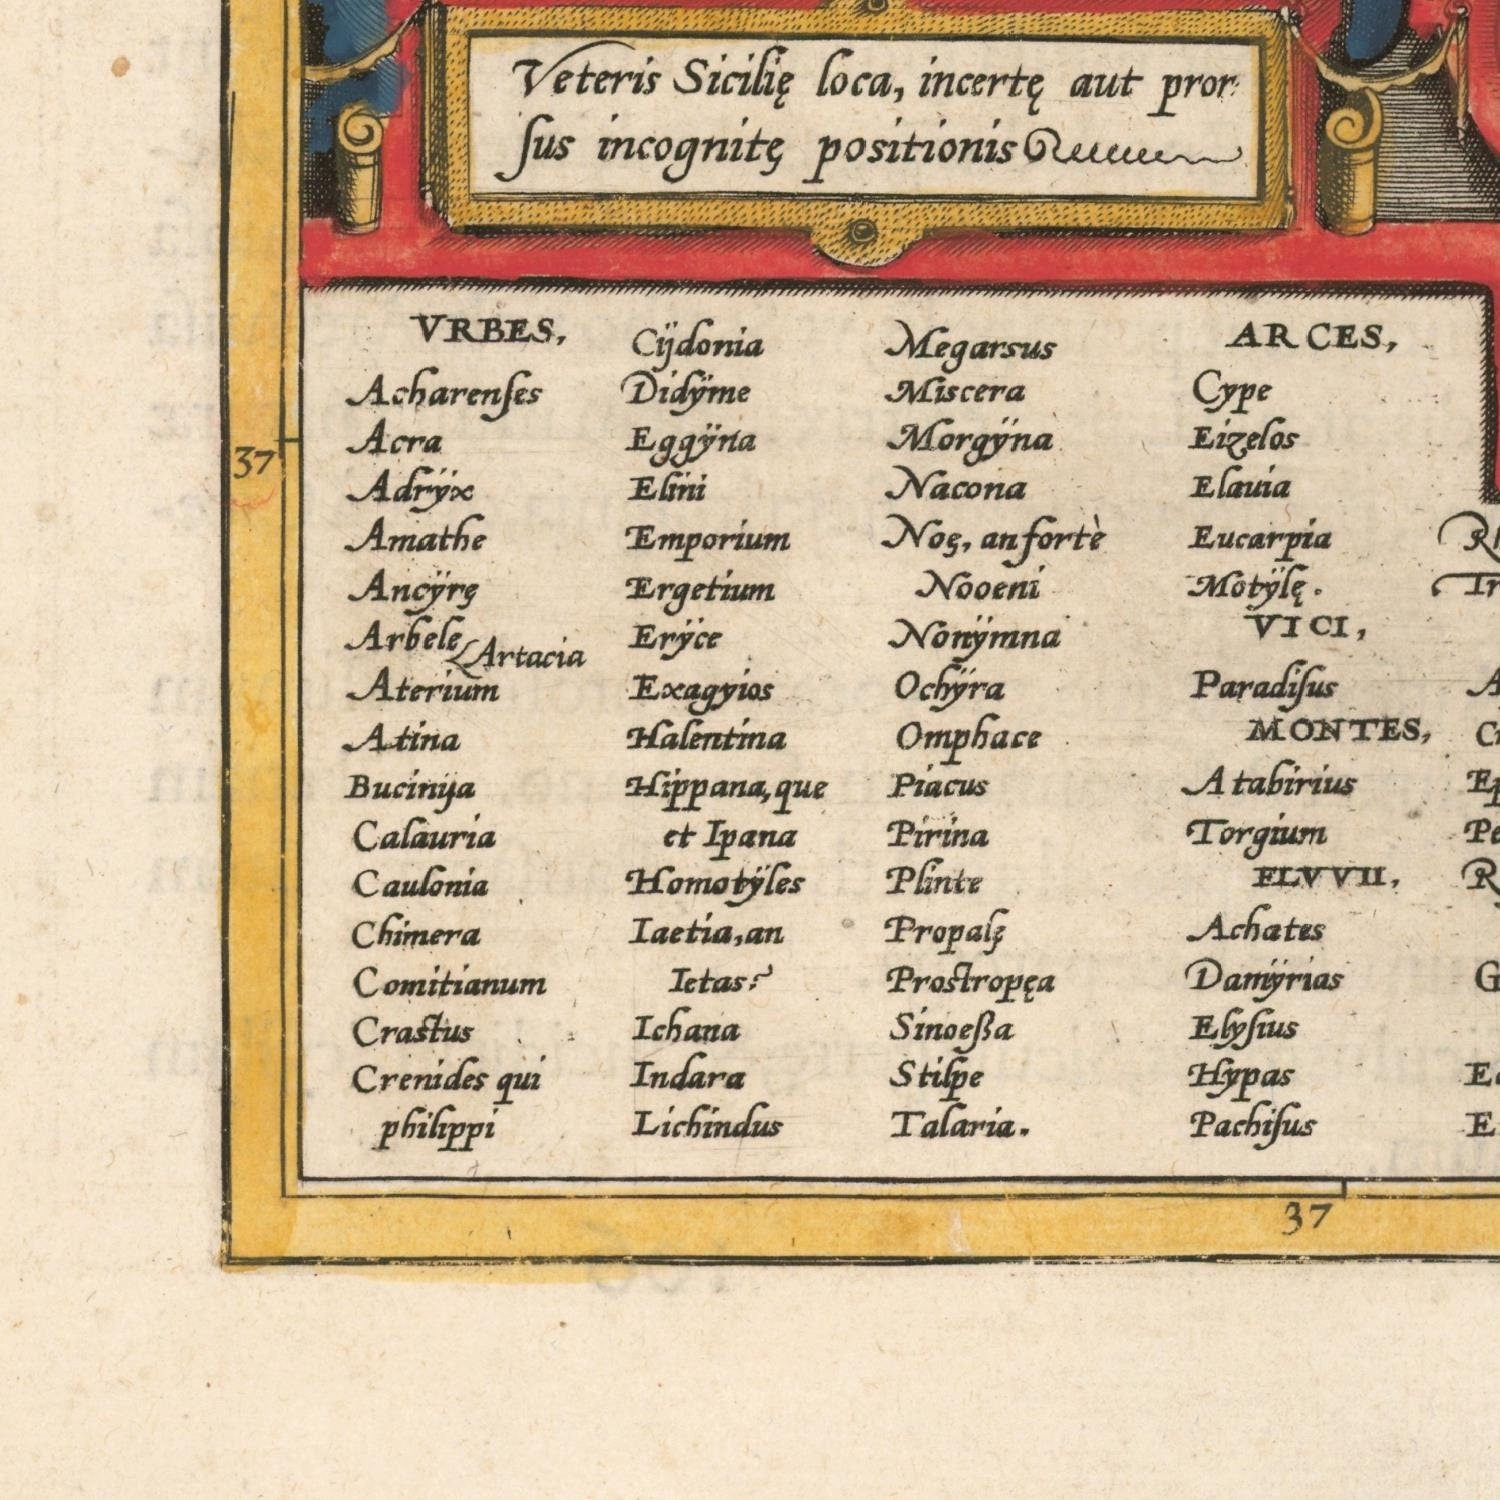 Veteris Sicilię loca, incertę aut pror-
ſus incognitę positionis
VRBES,
Acharenſes
Acra
Adrÿx
Amathe
Ancÿrę
Arbele
Artacia
Aterium
Atina
Bucinija
Calauria
Caulonia
Chimera
Comitianum
Crastus
Crenides qui
philippi
Cÿdonia
Didÿme
Eggÿna
Elini
Emporium
Ergetium
Erÿce
Exagyios
Halentina
Hippana, que
et Ipana
Homotÿles
Iaetia, an
Ietas?
Ichana
Indara
Lichindus
Megarsus
Miscera
Morgÿna
Nacona
Noę, an fortè
Nooeni
Nonÿmna
Ochÿra
Omphace
Piacus
Pirina
Plinte
Propalę
Prostropęa
Sinoeßa
Stilpe
Talaria.
ARCES,
Cype
Eizelos
Elauia
Eucarpia
Motÿlę.
VICI,
Paradiſus
MONTES,
Atabirius
Torgium
FLVVII,
Achates
Damÿrias
Elyſius
Hypas
Pachiſus
37
37